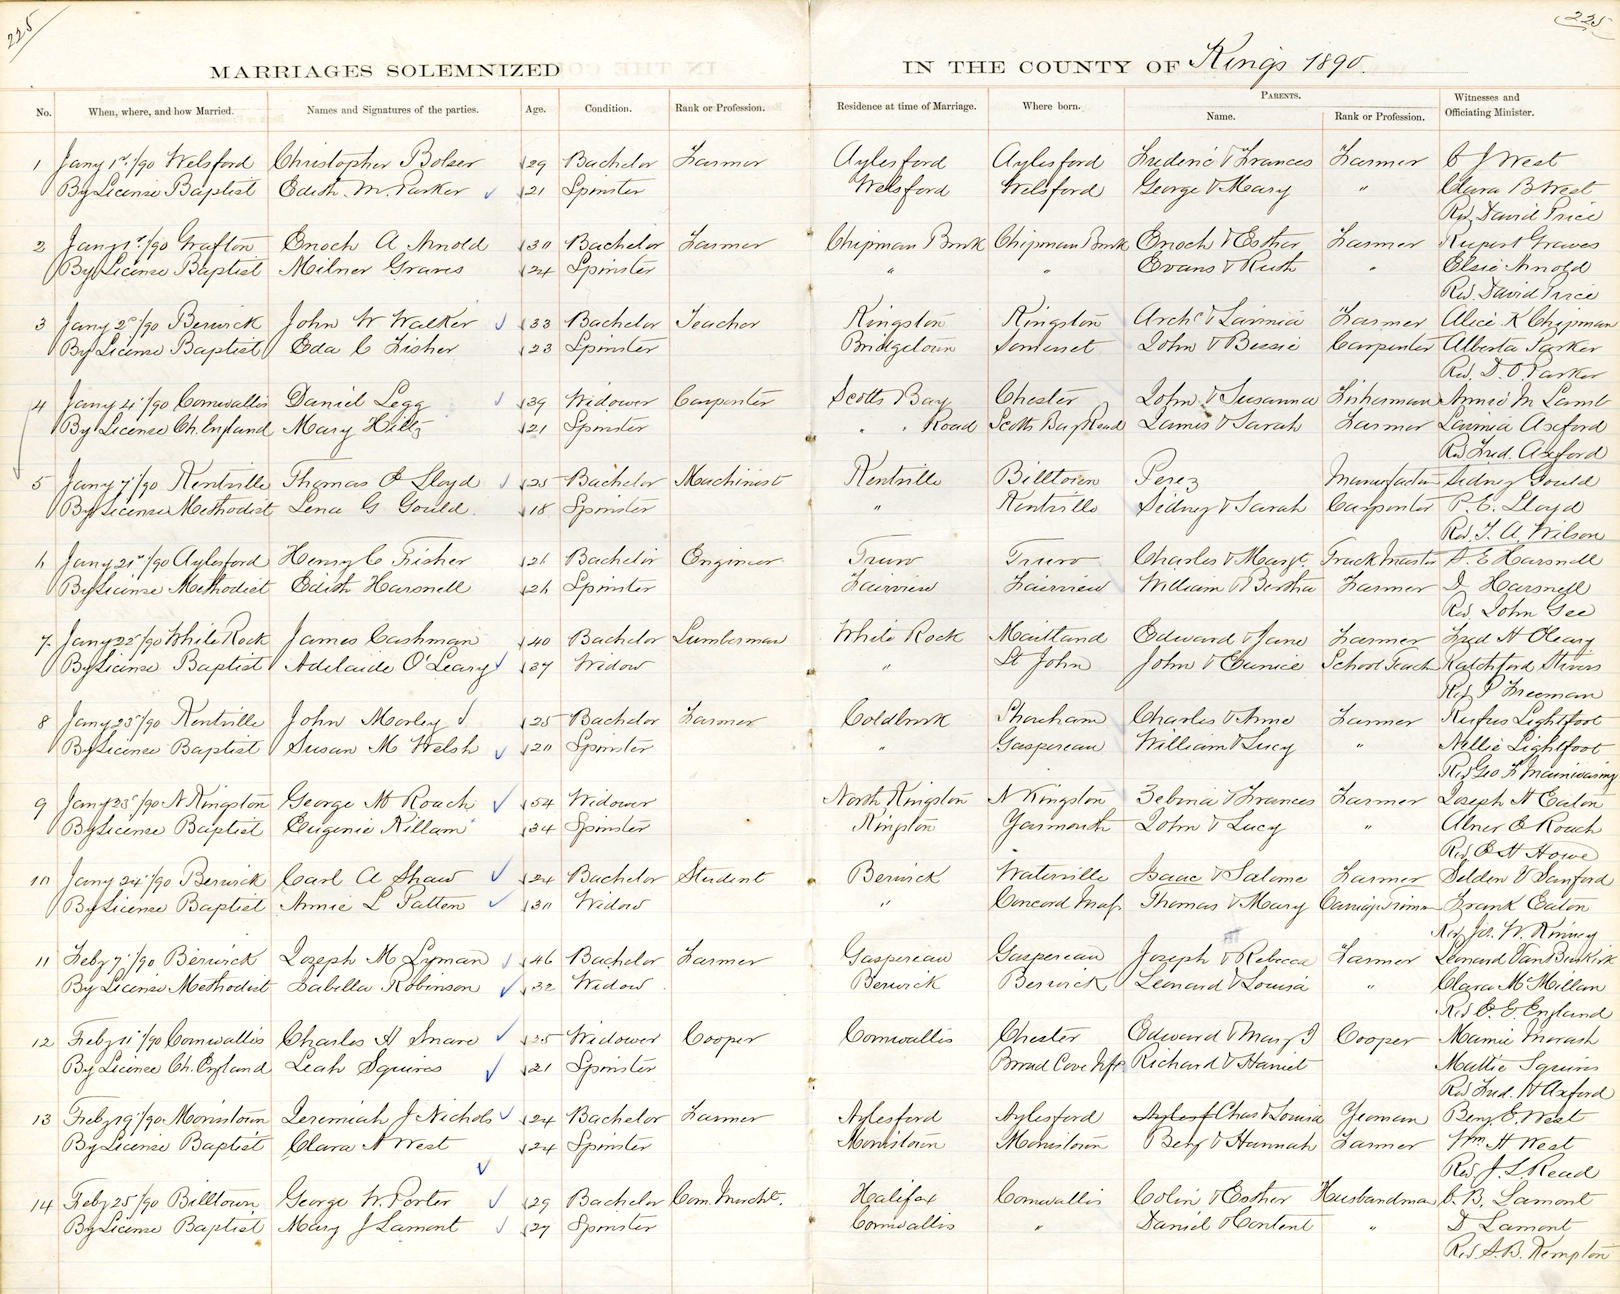 225
225
MARRIAGES SOLEMNIZED IN THE COUNTY OF Kings 1890.
No. When, where, and how Married. Names and Signatures of the parties. Age. Condition. Rank or Profession. Residence at time of Marriage. Where born. PARENTS. Name. Rank or Profession. Witnesses and Officiating Minister.
1 Jany 1st/90 Welsford Christopher Bolser 29 Bachelor Farmer Aylesford Aylesford Frederic & Frances Farmer C J West
By License Baptist Edith M. Parker 21 Spinster Welsford Welsford George & Mary " Clara B West
Rev. David Price
2 Jany 1st/90 Grafton Enoch A Arnold 30 Bachelor Farmer Chipman Brook Chipman Brook Enoch & Esther Farmer Rupert Graves
By License Baptist Milner Graves 24 Spinster " " Evans & Ruth " Elsie Arnold
Rev. David Price
3 Jany 2nd/90 Berwick John W Walker 33 Bachelor Teacher Kingston Kingston Archd & Lavinia Farmer Alice K Chipman
By License Baptist Eda C Fisher 23 Spinster Bridgetown Somerset John & Bessie Carpenter Alberta Parker
Rev. D. O. Parker
4 Jany 4/90 Cornwallis Daniel Legg 39 Widower Carpenter Scotts Bay Chester John & Susanna Fisherman Annie M Lamb
By License Ch. England Mary Hiltz 21 Spinster " " Road Scotts Bay Road James & Sarah Farmer Lavinia Axford
Rev Fred. Axford
5 Jany 7/90 Kentville Thomas P Lloyd 25 Bachelor Machinist Kentville Billtown Perez Manufactur Sidney Gould
By License Methodist Lena G Gould 18 Spinster " Kentville Sidney & Sarah Carpenter P. E. Lloyd
Rev. T. A. Wilson
6 Jany 21st/90 Aylesford Henry C Fisher 26 Bachelor Engineer Truro Truro Charles & Margt Track Master S. E Harsnell
By License Methodist Edith Harsnell 26 Spinster Fairview Fairview William & Bertha Farmer D Harsnell
Rev. John Gee
7 Jany 22/90 White Rock James Cashman 40 Bachelor Lumberman White Rock Maitland Edward & Jane Farmer Fred H OLeary
By License Baptist Adelaide O'Leary 37 Widow " St John John & Eunice School Teach Ratchford Stivers
Rev. P Freeman
8 Jany 23/90 Kentville John Morley 25 Bachelor Farmer Coldbrook Shoreham Charles & Anne Farmer Rufus Lightfoot
By License Baptist Susan M Welsh 20 Spinster " Gaspereau William & Lucy " Nellie Lightfoot
Rev Geo F Mainwaring
9 Jany 23/90 N Kingston George M Roach 54 Widower North Kingston N Kingston Zebina & Frances Farmer Joseph H Eaton
By License Baptist Eugenie Killam 34 Spinster Kingston Yarmouth John & Lucy " Abner E Roach
Rev. E H Howe
10 Jany 24/90 Berwick Carl A Shaw 24 Bachelor Student Berwick Waterville Isaac & Salome Farmer Selden V Sanford
By License Baptist Annie L Patten 30 Widow " Concord Mass. Thomas & Mary Carriage Trimer Frank Eaton
Rev. Jos. W. Kenney
11 Feby 7/90 Berwick Joseph M Lyman 46 Bachelor Farmer Gaspereau Gaspereau Joseph & Rebecca Farmer Leonard Van Buskirk
By License Methodist Isabella Robinson 32 Widow Berwick Berwick Leonard & Louisa " Clara McMillan
Rev. E. E. England
12 Feby 11/90 Cornwallis Charles H Snare 35 Widower Cooper Cornwallis Chester Edward & Mary J Cooper Mamie Marsh
By Licence Ch. England Leah Squires 21 Spinster Broad Cove Nfld Richard & Hariet Mattie Squires
Rev Fred. H Axford
13 Feby 19/90 Morristown Jeremiah J Nichols 24 Bachelor Farmer Aylesford Aylesford Aylesf Chas & Louisa Yeoman Benj. E. West
By License Baptist Clara N West 24 Spinster Morristown Morristown Benj & Hannah Farmer Wm H West
Rev. J. L Read
14 Feby 25/90 Billtown George W. Porter 29 Bachelor Com. Mercht. Halifax Cornwallis Colin & Esther Husbandman C. B. Lamont
By License Baptist Mary J Lamont 27 Spinster Cornwallis " Daniel & Content " D Lamont
Rev S. B. Kempton